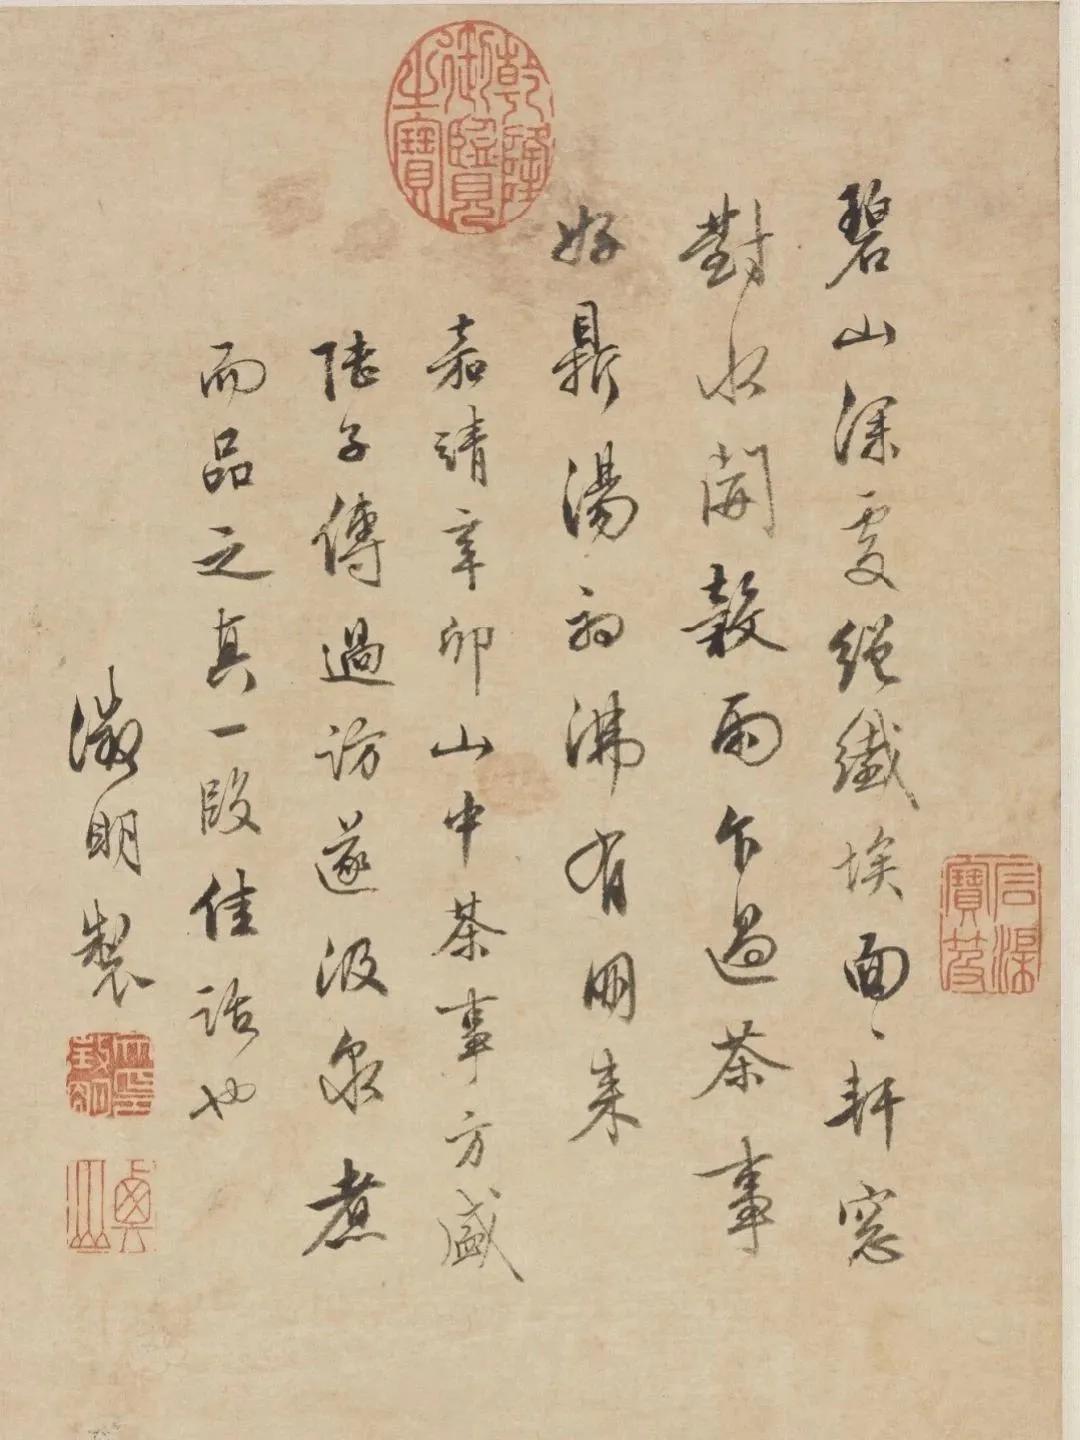 石渠寶笈
碧山深處絕纖埃面〻軒窓
對水開穀雨乍過茶事
好鼎湯初沸有朋來
乾隆御覽之寶
嘉靖辛卯山中茶事方盛
陸子傳過訪遂汲泉煮
而品之真一段佳話也
徵明製